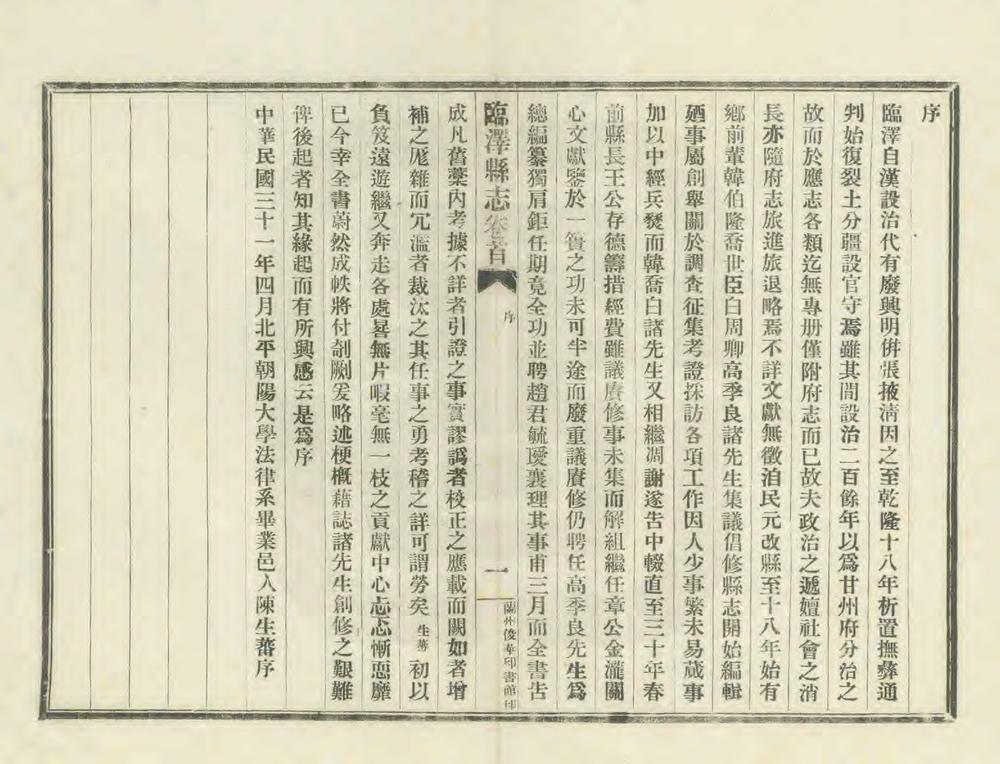 序
臨澤自漢設治代有廢興明倂張掖淸因之至乾隆十八年析置撫彝通
判始復裂土分疆設官守焉雖其間設治二百餘年以爲甘州府分治之
故而於應志各類迄無專册僅附府志而已故夫政治之遞嬗社會之消
長亦隨府志旅進旅退略焉不詳文獻無徵洎民元改縣至十八年始有
鄕前輩韓伯隆喬世臣白周卿高季良諸先生集議倡修縣志開始編輯
廼事屬創舉關於調查征集考證採訪各項工作因人少事繁未易蕆事
加以中經兵燹而韓喬白諸先生又相繼凋謝遂告中輟直至三十年春
前縣長王公存德籌措經費雖議賡修事未集而解組繼任章公金瀧關
心文獻鑒於一簣之功未可半途而廢重議賡修仍聘任高季良先生爲
總編纂獨肩鉅任期竟全功並聘趙君毓璦襄理其事甫三月而全書告
臨澤縣志卷首
序
一
蘭州俊華印書館印
成凡舊藁內考據不詳者引證之事實謬譌者校正之應載而闕如者增
補之厖雜而冗濫者裁汰之其任事之勇考稽之詳可謂勞矣生蕃初以
負笈遠遊繼又奔走各處晷無片暇毫無一枝之貢獻中心忐忑慚恧靡
已今幸全書蔚然成帙將付剞劂爰略述梗槪藉誌諸先生創修之艱難
俾後起者知其緣起而有所興感云是爲序
中華民國三十一年四月北平朝陽大學法律系畢業邑人陳生蕃序